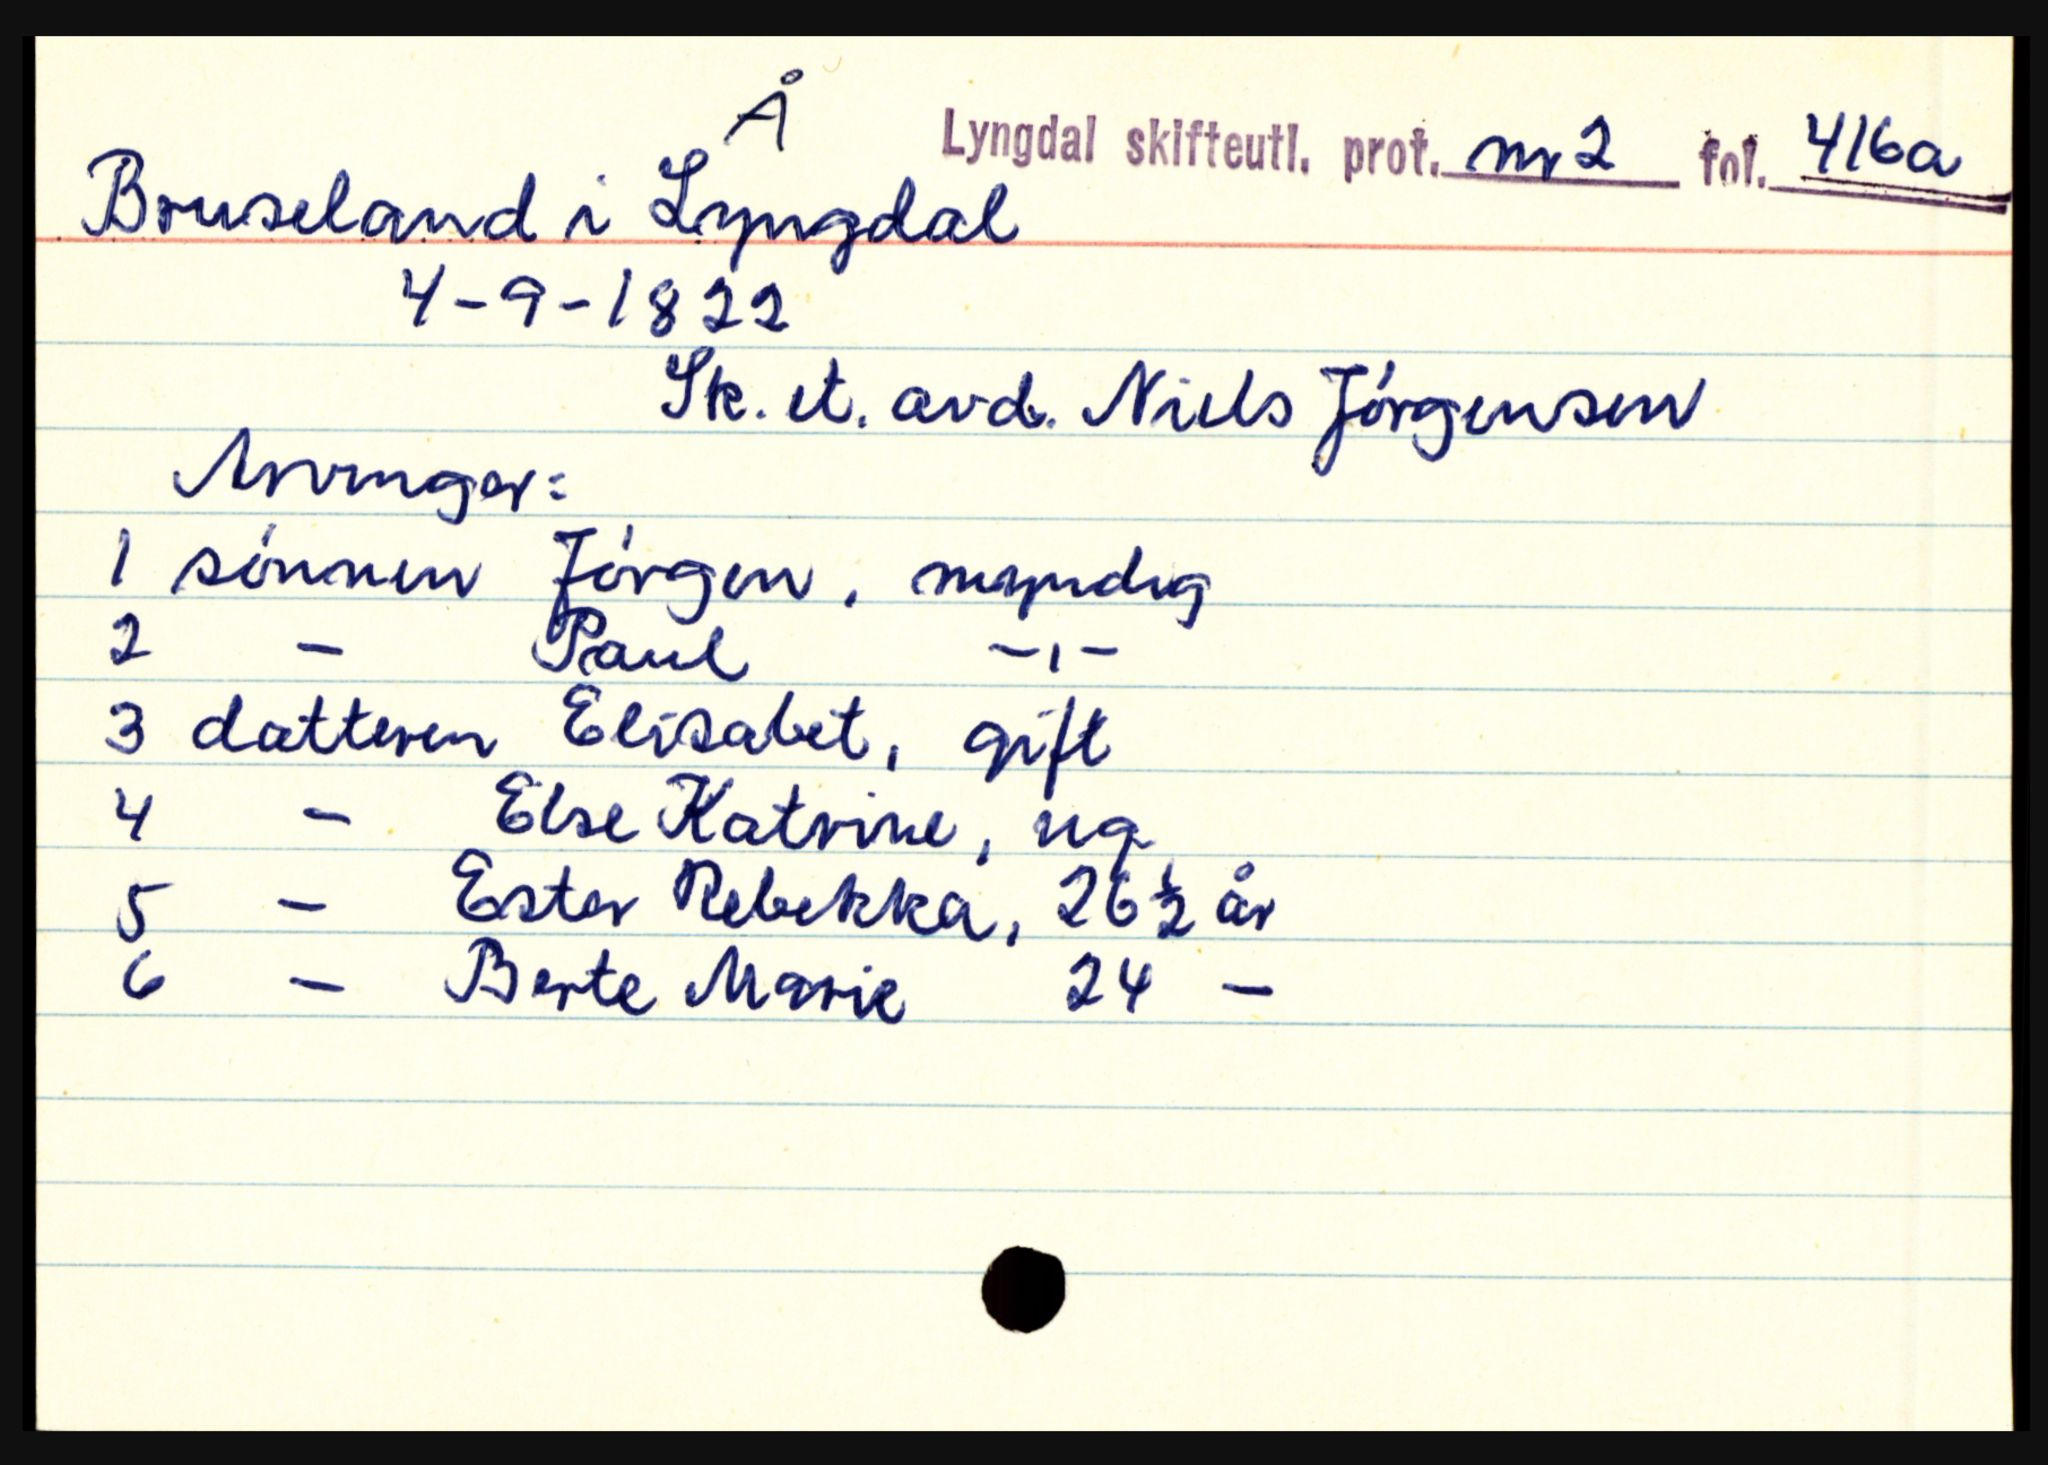 Å
Lyngdal skifteutl. prot. nr 2 fol. 416a
Bruseland i Lyngdal
4-9-1822
Sk. et. avd. Niels Jörgensen
Arvinger:
1 sönnen Jörgen, myndig
2 - Paul -ı-
3 datteren Elisabet, gift
4 - Else Katrine, ug
5 - Ester Rebekka, 26 1/2 år
6 - Berte Marie 24 -